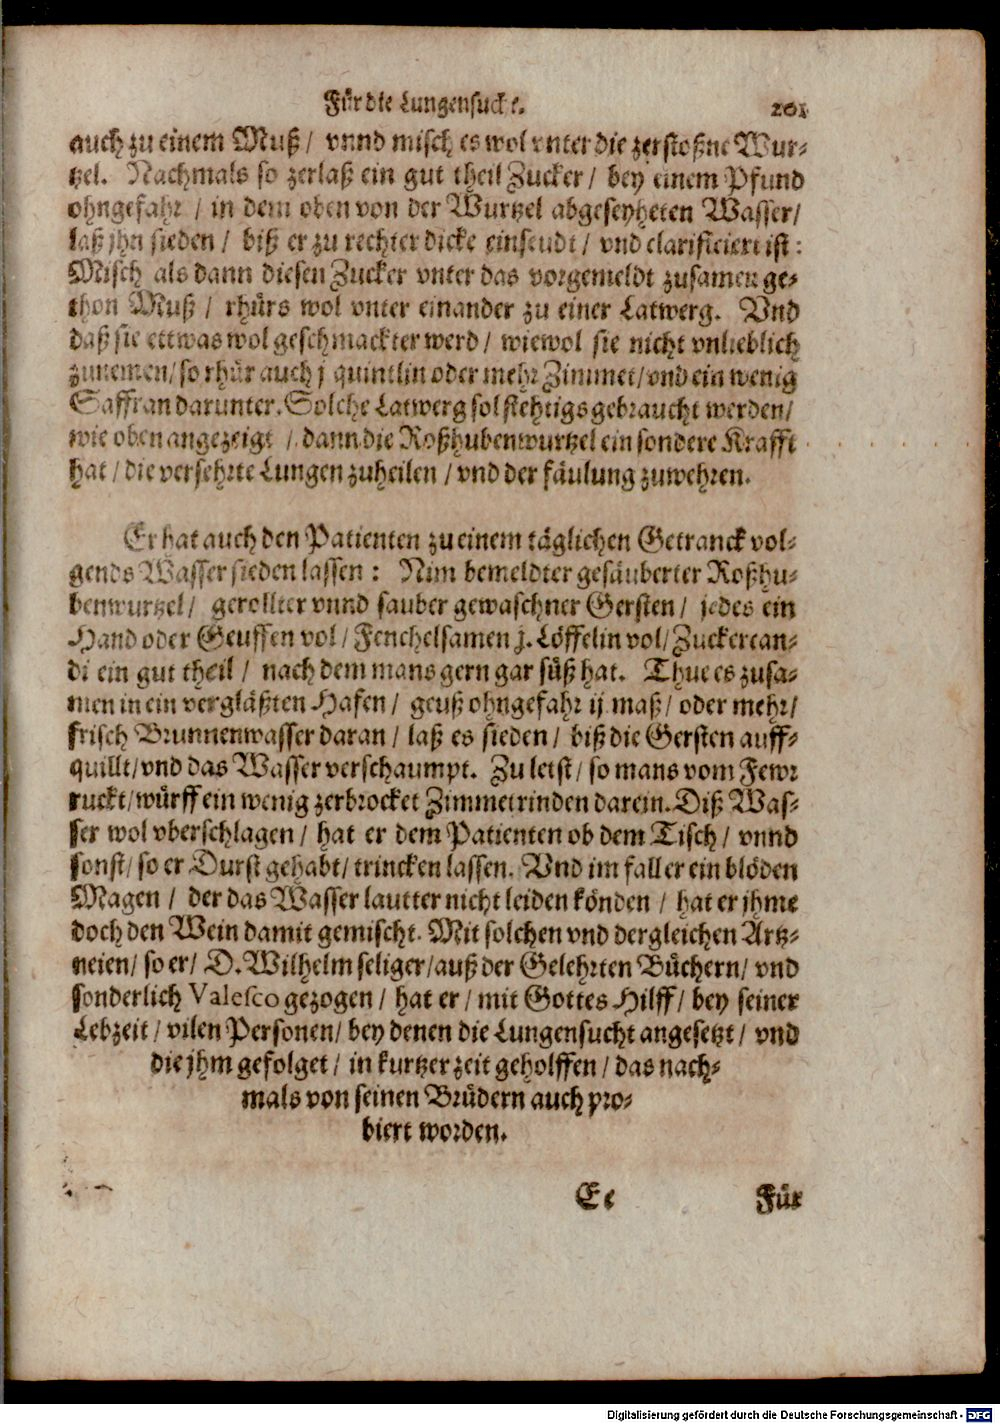 Für die Lungensucht. 201
auch zu einem Muß / vnnd misch es wol vnter die zerstoßne Wur⸗
tzel. Nachmals so zerlaß ein gut theil Zucker / bey einem Pfund
ohngefahr / in dem oben von der Wurtzel abgeseyheten Wasser /
laß jhn sieden / biß er zu rechter dicke einseudt / vnd clarificiert ist :
Misch als dann diesen Zucker vnter das vorgemeldt zusamen ge⸗
thon Muß / rhürs wol vnter einander zu einer Latwerg. Vnd
daß sie ettwas wol geschmackter werd / wiewol sie nicht vnlieblich
zunemen / so rhür auch j quintlin oder mehr Zimmet / vnd ein wenig
Saffran darunter. Solche Latwerg sol stehtigs gebraucht werden /
wie oben angezeigt / dann die Roßhubenwurtzel ein sondere Krafft
hat / die versehrte Lungen zuheilen / vnd der fäulung zuwehren.
Er hat auch den Patienten zu einem täglichen Getranck vol⸗
gends Wasser sieden lassen : Nim bemeldter gesäuberter Roßhu⸗
benwurtzel / gerollter vnnd sauber gewaschner Gersten / jedes ein
Hand oder Geuffen vol / Fenchelsamen j. Löffelin vol / Zuckercan⸗
di ein gut theil / nach dem mans gern gar süß hat. Thue es zusa⸗
men in ein vergläßten Hafen / geuß ohngefahr ij maß / oder mehr /
frisch Brunnenwasser daran / laß es sieden / biß die Gersten auff⸗
quillt / vnd das Wasser verschaumpt. Zu letst / so mans vom Fewr
ruckt / würff ein wenig zerbrocket Zimmetrinden darein. Diß Was⸗
ser wol vberschlagen / hat er dem Patienten ob dem Tisch / vnnd
sonst / so er Durst gehabt / trincken lassen. Vnd im fall er ein blöden
Magen / der das Wasser lautter nicht leiden könden / hat er jhme
doch den Wein damit gemischt. Mit solchen vnd dergleichen Artz⸗
neien / so er / D. Wilhelm seliger / auß der Gelehrten Büchern / vnd
sonderlich Valesco gezogen / hat er / mit Gottes Hilff / bey seiner
Lebzeit / vilen Personen / bey denen die Lungensucht angesetzt / vnd
die jhm gefolget / in kurtzer zeit geholffen / das nach⸗
mals von seinen Brüdern auch pro⸗
biert worden.
Ee Für
Digitalisierung gefördert durch die Deutsche Forschungsgemeinschaft - DFG